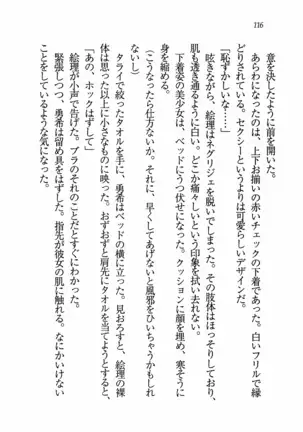 116
意を決したように前を開いた。
あらわになったのは、上下お揃いの赤いチェックの下着であった。白いフリルで縁
どりされている。セクシーというよりは可愛らしいデザインだ。
「恥ずかしいな……」
呟きながら、絵理はネグリジェを脱いでしまった。その肢体はほっそりしており、
肌も透き通るように白い。どこか痛々しいという印象を拭い去れない。
下着姿の美少女は、ベッドにうつ伏せになった。クッションに顔を埋め、寒そうに
身を縮める。
（こうなったら仕方ないか。それに、早くしてあげないと風邪をひいちゃうかもしれ
ないし）
タライで絞ったタオルを手に、勇希はベッドの横に立った。見おろすと、絵理の裸
体は思った以上に小さなものに映った。おずおずと肩先にタオルを当てようとすると、
「あの、ホックはずして」
絵理が小声で告げた。ブラのそれのことだとすぐにわかった。
緊張しつつ、勇希は留め具をはずした。指先が彼女の肌に触れる。なにかいけない
ことをしているような気になった。